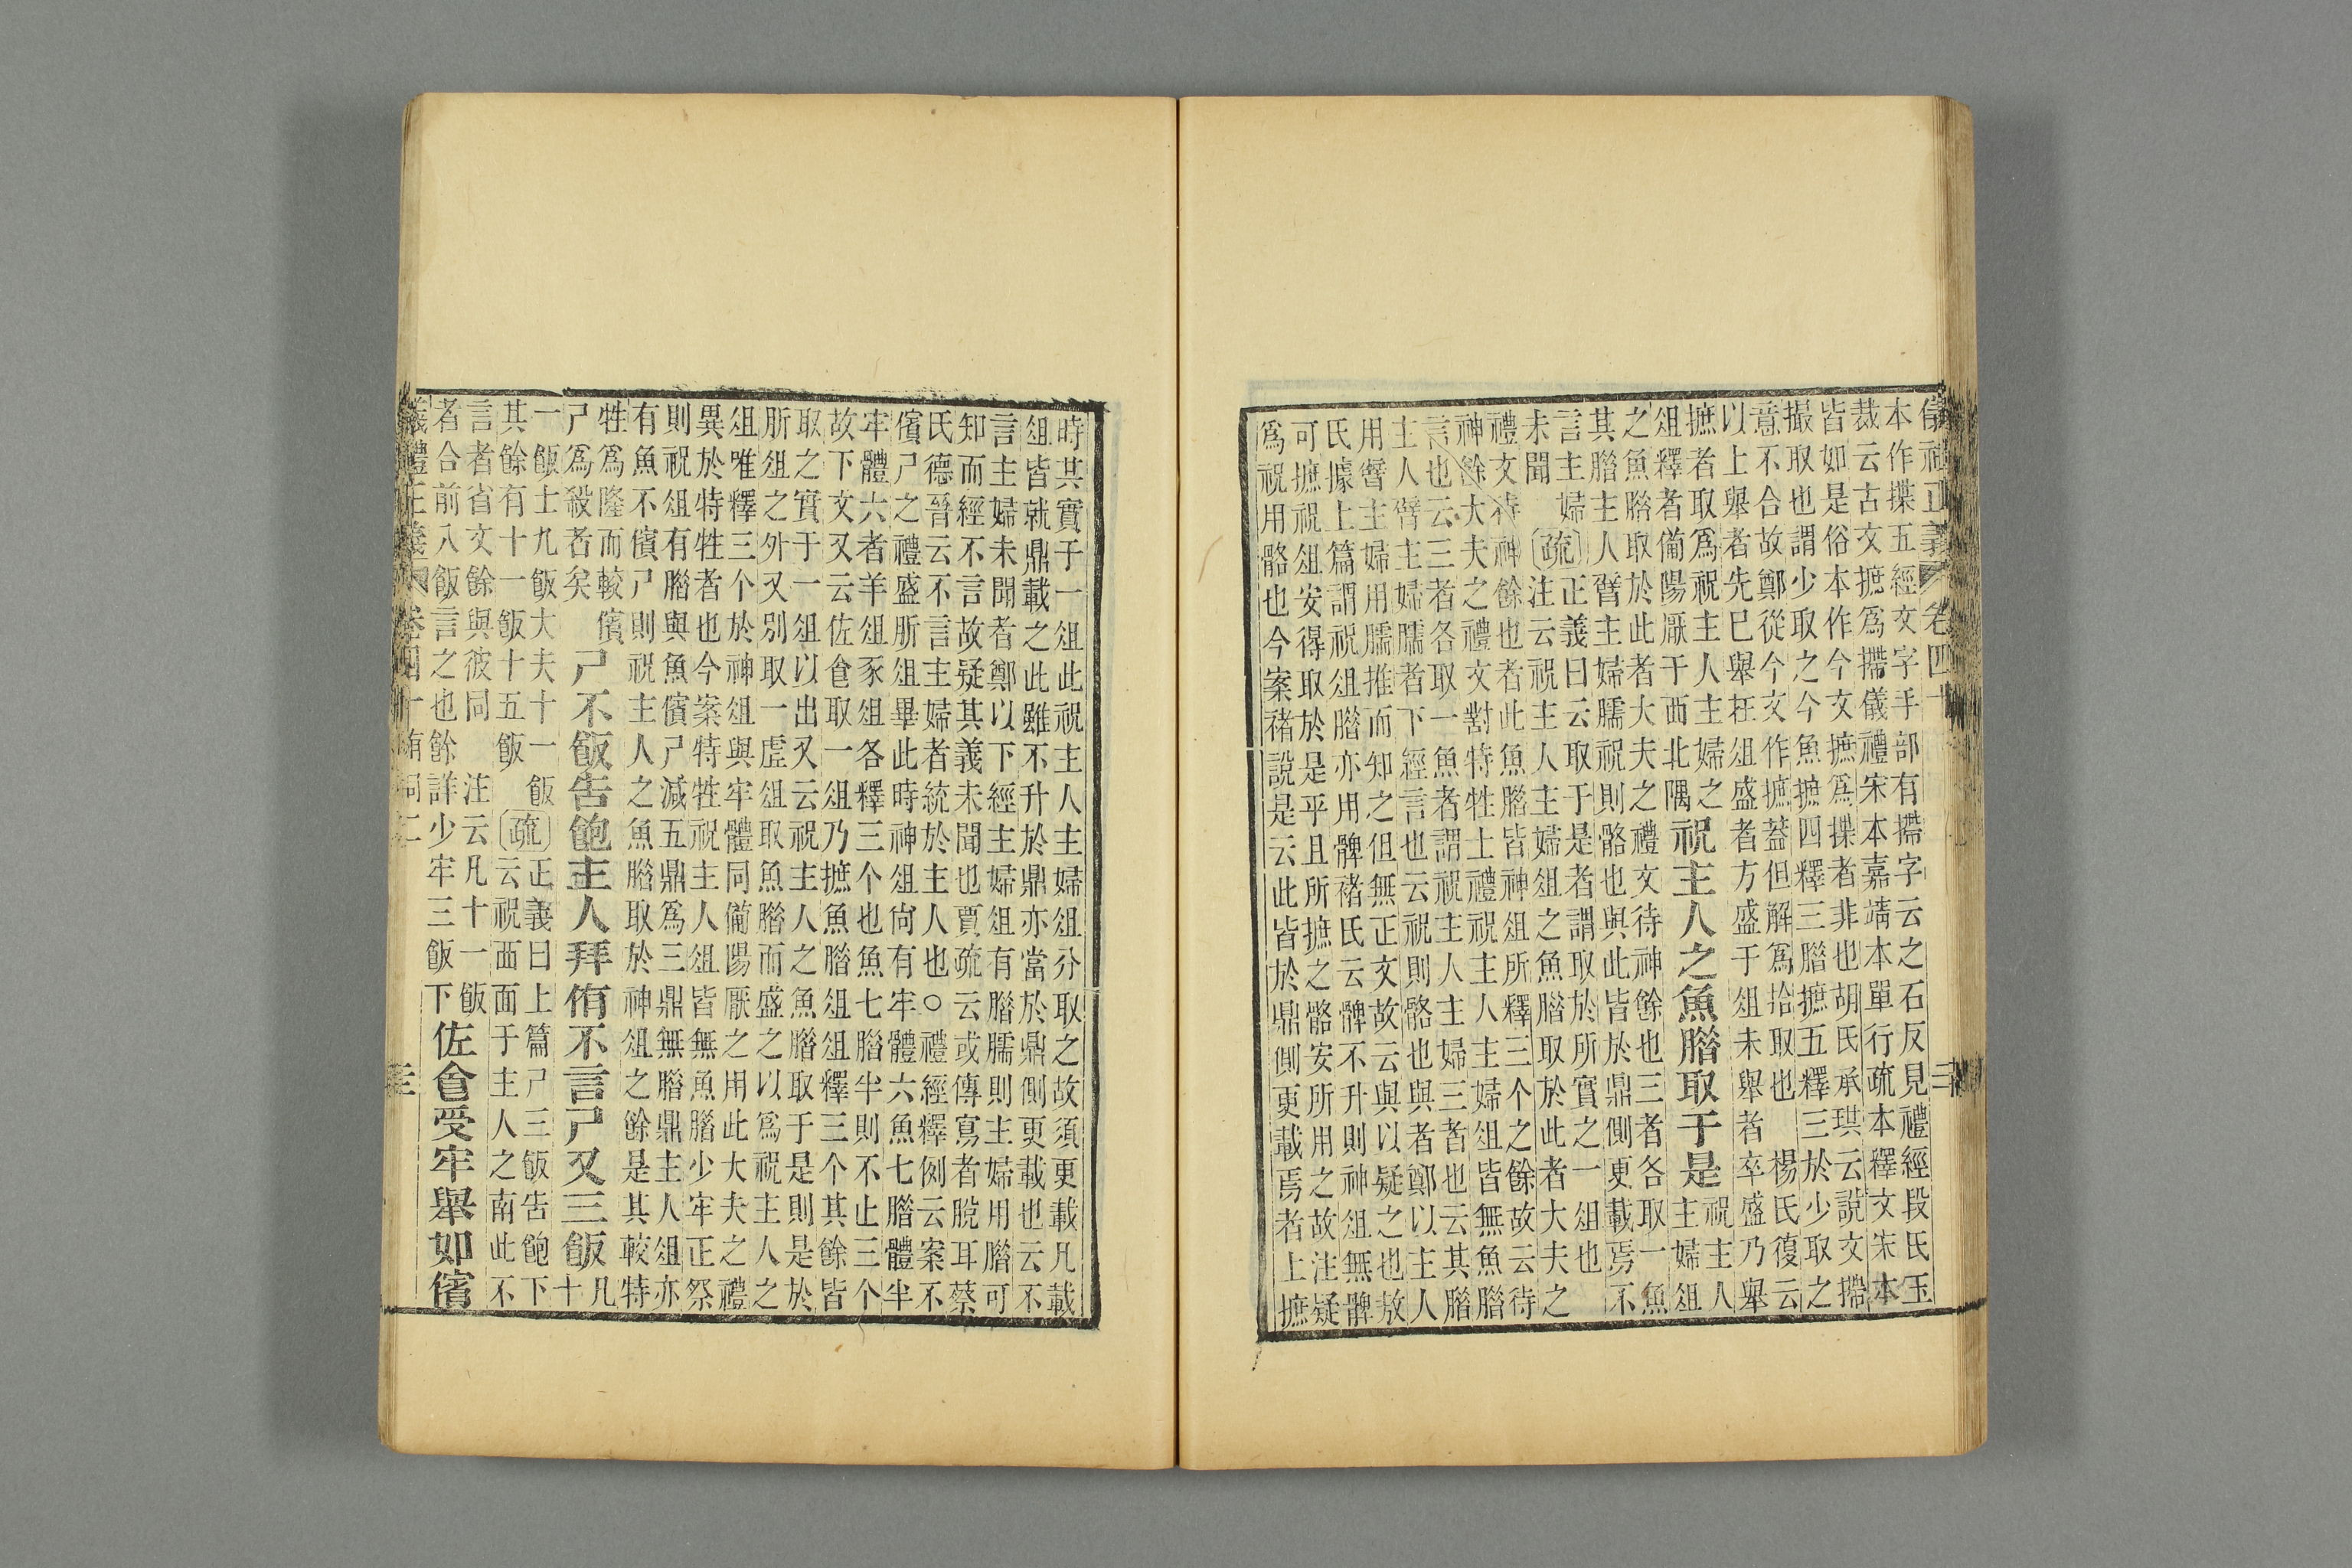 儀禮正義 卷四十 三
本作揲五經文字手部有㨮字云之石反見禮經段氏玉
裁云古文摭爲㨮儀禮宋本嘉靖本單行疏本釋文宋本
皆如是俗本作今文摭爲揲者非也胡氏承珙云說文㨮
撮取也謂少取之今魚摭四釋三腊摭五釋三於少取之
意不合故鄭從今文作摭蓋但解爲拾取也 楊氏復云
以上舉者先已舉在俎盛者方盛于俎未舉者卒盛乃舉
摭者取爲祝主人主婦之
俎釋者備陽厭于西北隅
祝主人之魚腊取于是
祝主人
主婦俎
之魚腊取於此者大夫之禮文待神餘也三者各取一魚
其腊主人臂主婦臑祝則骼也與此皆於鼎側更載焉不
言主婦
未聞
疏正義曰云取于是者謂取於所實之一俎也
注云祝主人主婦俎之魚腊取於此者大夫之
禮文待神餘也者此魚腊皆神俎所釋三个之餘故云待
神餘大夫之禮文對特牲士禮祝主人主婦俎皆無魚腊
言也云三者各取一魚者謂祝主人主婦三者也云其腊
主人臂主婦臑者下經言也云祝則骼也與者鄭以主人
用臂主婦用臑推而知之但無正文故云與以疑之也敖
氏據上篇謂祝俎腊亦用髀褚氏云髀不升則神俎無髀
可摭祝俎安得取於是乎且所摭之骼安所用之故注疑
爲祝用骼也今案褚說是云此皆於鼎側更載焉者上摭
時其實于一俎此祝主人主婦俎分取之故須更載凡載
俎皆就鼎載之此雖不升於鼎亦當於鼎側更載也云不
言主婦未聞者鄭以下經主婦俎有腊臑則主婦用腊可
知而經不言故疑其義未聞也賈疏云或傳寫者脫耳蔡
氏德晉云不言主婦者統於主人也○禮經釋例云案不
儐尸之禮盛肵俎畢此時神俎尙有牢體六魚七腊體半
牢體六者羊俎豕俎各釋三个也魚七腊半則不止三个
故下文又云佐食取一俎乃摭魚腊俎俎釋三个其餘皆
取之實于一俎以出又云祝主人之魚腊取于是則是於
肵俎之外又別取一虛俎取魚腊而盛之以爲祝主人之
俎唯釋三个於神俎與牢體同備陽厭之用此大夫之禮
異於特牲者也今案特牲祝主人俎皆無魚腊少牢正祭
則祝俎有腊與魚儐尸減五鼎爲三鼎無腊鼎主人俎亦
有魚不儐尸則祝主人之魚腊取於神俎之餘是其較特
牲爲隆而較儐
尸爲殺者矣
尸不飯告飽主人拜侑不言尸又三飯
凡
十
一飯士九飯大夫十一飯
其餘有十一飯十五飯
疏正義曰上篇尸三飯告飽下
云祝西面于主人之南此不
言者省文餘與彼同 注云凡十一飯
者合前八飯言之也餘詳少牢三飯下
佐食受牢舉如儐
儀禮正義 卷四十 有司二